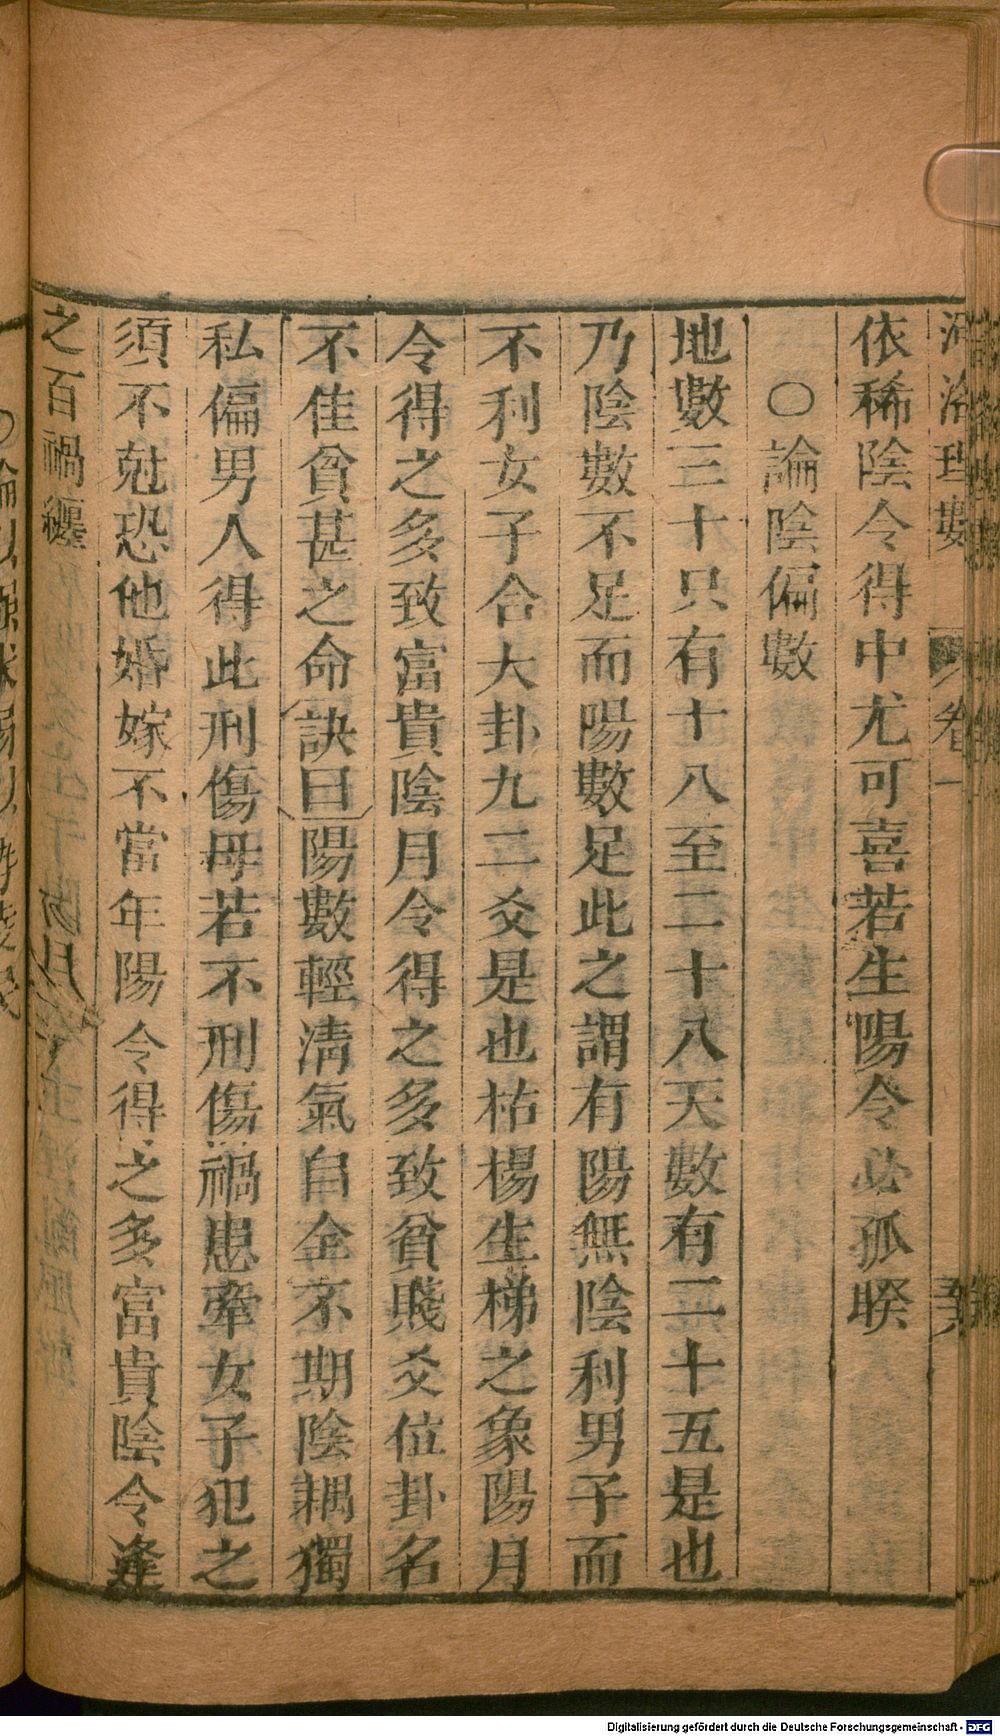 河洛理數 卷一
依稀陰令得中尤可喜若生陽令必孤睽
○論陰偏數
地數三十只有十八至二十八天數有二十五是也
乃陰數不足而陽數足此之謂有陽無陰利男子而
不利女子合大卦九二爻是也枯楊生梯之象陽月
令得之多致富貴陰月令得之多致貧賤爻位卦名
不佳貧甚之命訣曰陽數輕清氣自全不期陰耦獨
私偏男人得此刑傷母若不刑傷禍患牽女子犯之
須不尅恐他婚嫁不當年陽令得之多富貴陰令逢
之百禍纏
Digitalisierung gefördert durch die Deutsche Forschungsgemeinschaft - DFG